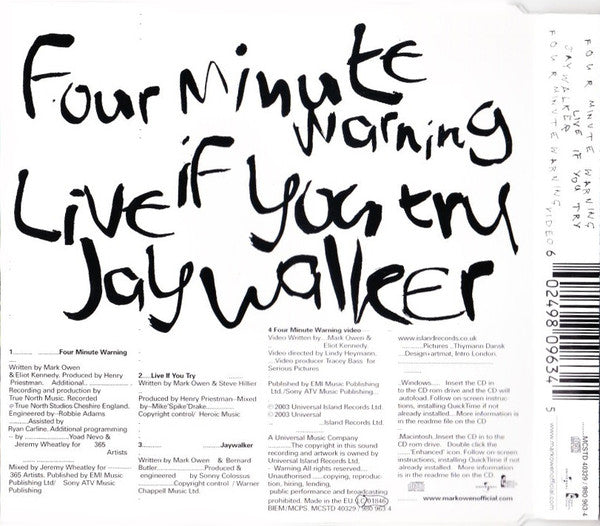 Four Minute
Warning
Live if You try
Jaywalker
1............Four Minute Warning
Written by Mark Owen
& Eliot Kennedy. Produced by Henry
Priestman. Additional............
Recording and production by
True North Music. Recorded
@True North Studios Cheshire England.
Engineered by Robbie Adams
............Assisted by
Ryan Carline. Additional programming
- by ............ Yoad Nevo &
Jeremy Wheatley for 365
Artists
Mixed by Jeremy Wheatley for ----
365 Artists. Published by EMI Music
Publishing Ltd/ Sony ATV Music
Publishing
2....Live If You Try
Written by Mark Owen & Steve Hillier
Produced by Henry Priestman--Mixed
by--Mike'Spike'Drake
Copyright control/ Heroic Music
3............Jaywalker
Written by Mark Owen & Bernard
Butler............Produced &
engineered by Sonny Colossus
Copyright control / Warner
Chappell Music Ltd
4 Four Minute Warning video
Video Written by...Mark Owen &
Eliot Kennedy.
Video directed by Lindy Heymann.
..Video producer Tracey Bass for
Serious Pictures
Published by EMI Music Publishing
Ltd./Sony ATV Music Publishing.
℗ 2003 Universal Island Records Ltd.
© 2003 Universal
Island Records Ltd.
A Universal Music Company
The copyright in this sound
recording and artwork is owned by
Universal Island Records Ltd.
- Warning All rights reserved....
Unauthorised ....copying, reproduc-
tion, hiring, lending,
public performance and broadcasting
prohibited. Made in the EU LC01846
BIEM/MCPS. MCSTD 40329 / 980 963 4
www.islandrecords.co.uk
Pictures .. Thymann Dansk
Design=artmat, Intro London.
..Windows.... Insert the CD in
to the rom drive and the CD will
autoload. Follow on screen instruc-
tions, installing QuickTime if not
already installed.. More information is
in the readme file on the CD
..Macintosh..Insert the CD in to
the CD rom drive. Double click the
..'Enhanced' icon. Follow on screen
instructions, installing QuickTime if
not already installed. ... More
information is in the readme file
on the CD.
www.markowenofficial.com
FOUR MINUTE WARNING
LIVE IF YOU TRY
JAYWALKER
FOUR MINUTE WARNING VIDEO
6 02498 09634 5
MCSTD 40329 / 980 963 4
www.markowenofficial.com